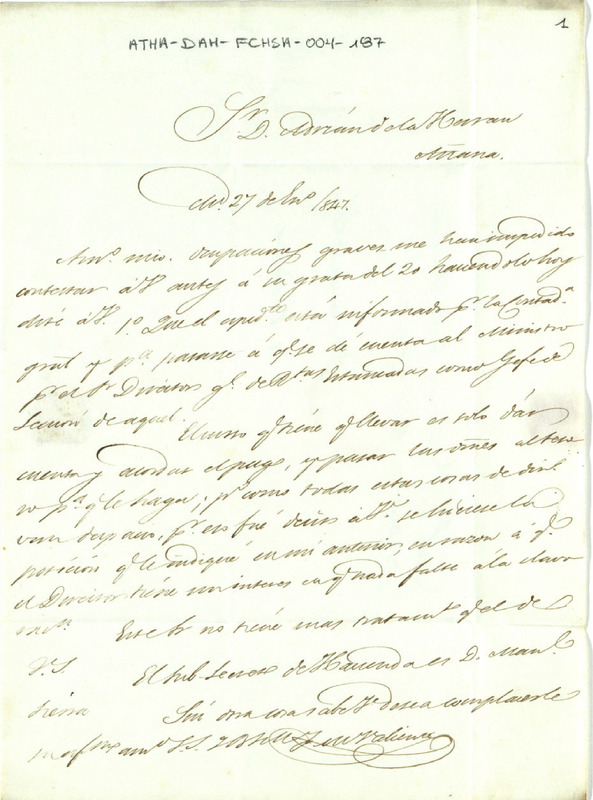 1
ATHA-DAH-FCHSA-004-137
Sr. D. Adrián de la Herran
Añana.
Md. 27 de En.º /847.
Am.º mio. Ocupaciones graves me han impedido
contestar á V. antes á su grata del 20 haciendolo hoy
diré á V. 1.º Que el exped.te está informado p.r la Contad.a
gral y p.a pasarse á q.e se dé cuenta al Ministro
p.r el Sr. Director g.l de R.tas Estancadas como Gefe de
Seccion de aquel.
El curso q.e tiene q.e llevar es solo dár
cuenta y acordar el pago, y pasar las ornes. al teso
ro p.a q.e le haga; p.o como todas estas cosas de
van despacio, p.r eso fué deciros á V. se hiciese la
peticion q.e le indiqué en mi anterior, en razon á q.e
el Director tiene un interes en q.e nada falte á la
Este Sr. no tiene mas tratam.to q.e el de
V.S.
El Sub-Secret.o de Hacienda es D. Man.l
Sierra
Sin otra cosa sabe V. desea complacerle
su af.mo am.o S.S. Q.B.S.M.
de Valiente